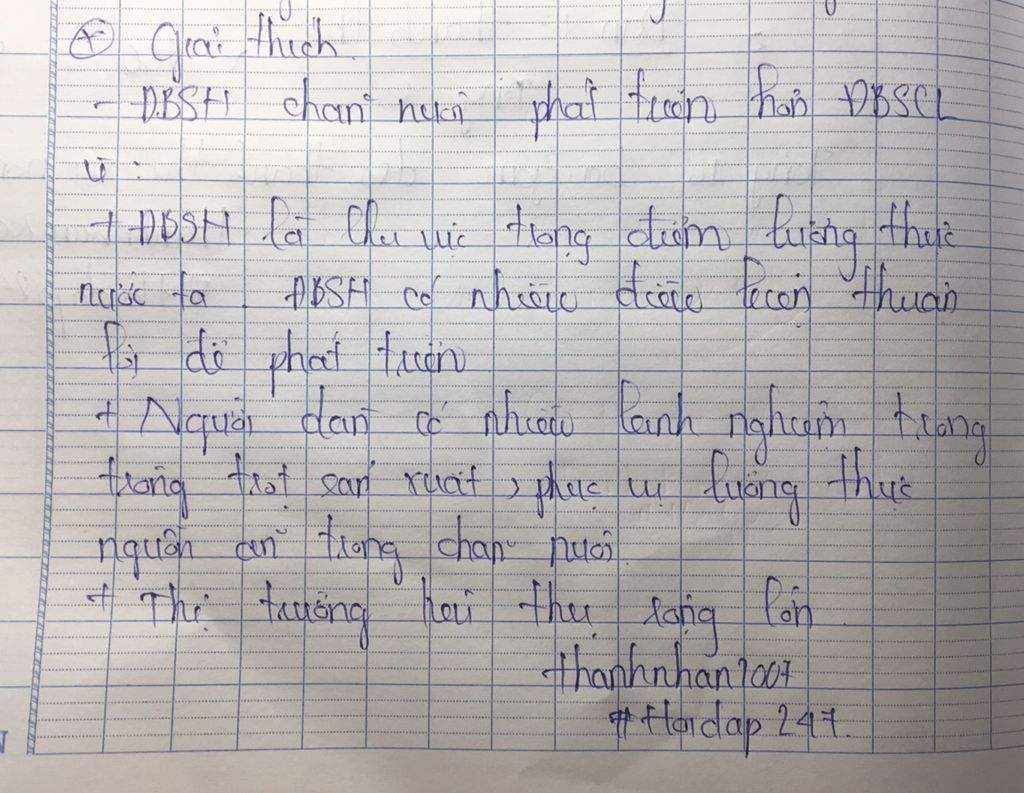 + Giải thích
- ĐBSH chăn nuôi phát triển hơn ĐBSCL
vì :
+ ĐBSH là khu vực trọng điểm lương thực
nước ta. ĐBSH có nhiều điều kiện thuận
lợi để phát triển
+ Người dân có nhiều kinh nghiệm trong
trồng trọt sản xuất, phục vụ lương thực
nguồn ăn trong chăn nuôi.
+ Thị trường tiêu thụ rộng lớn.
thanhnhan2007
#Hoidap247.